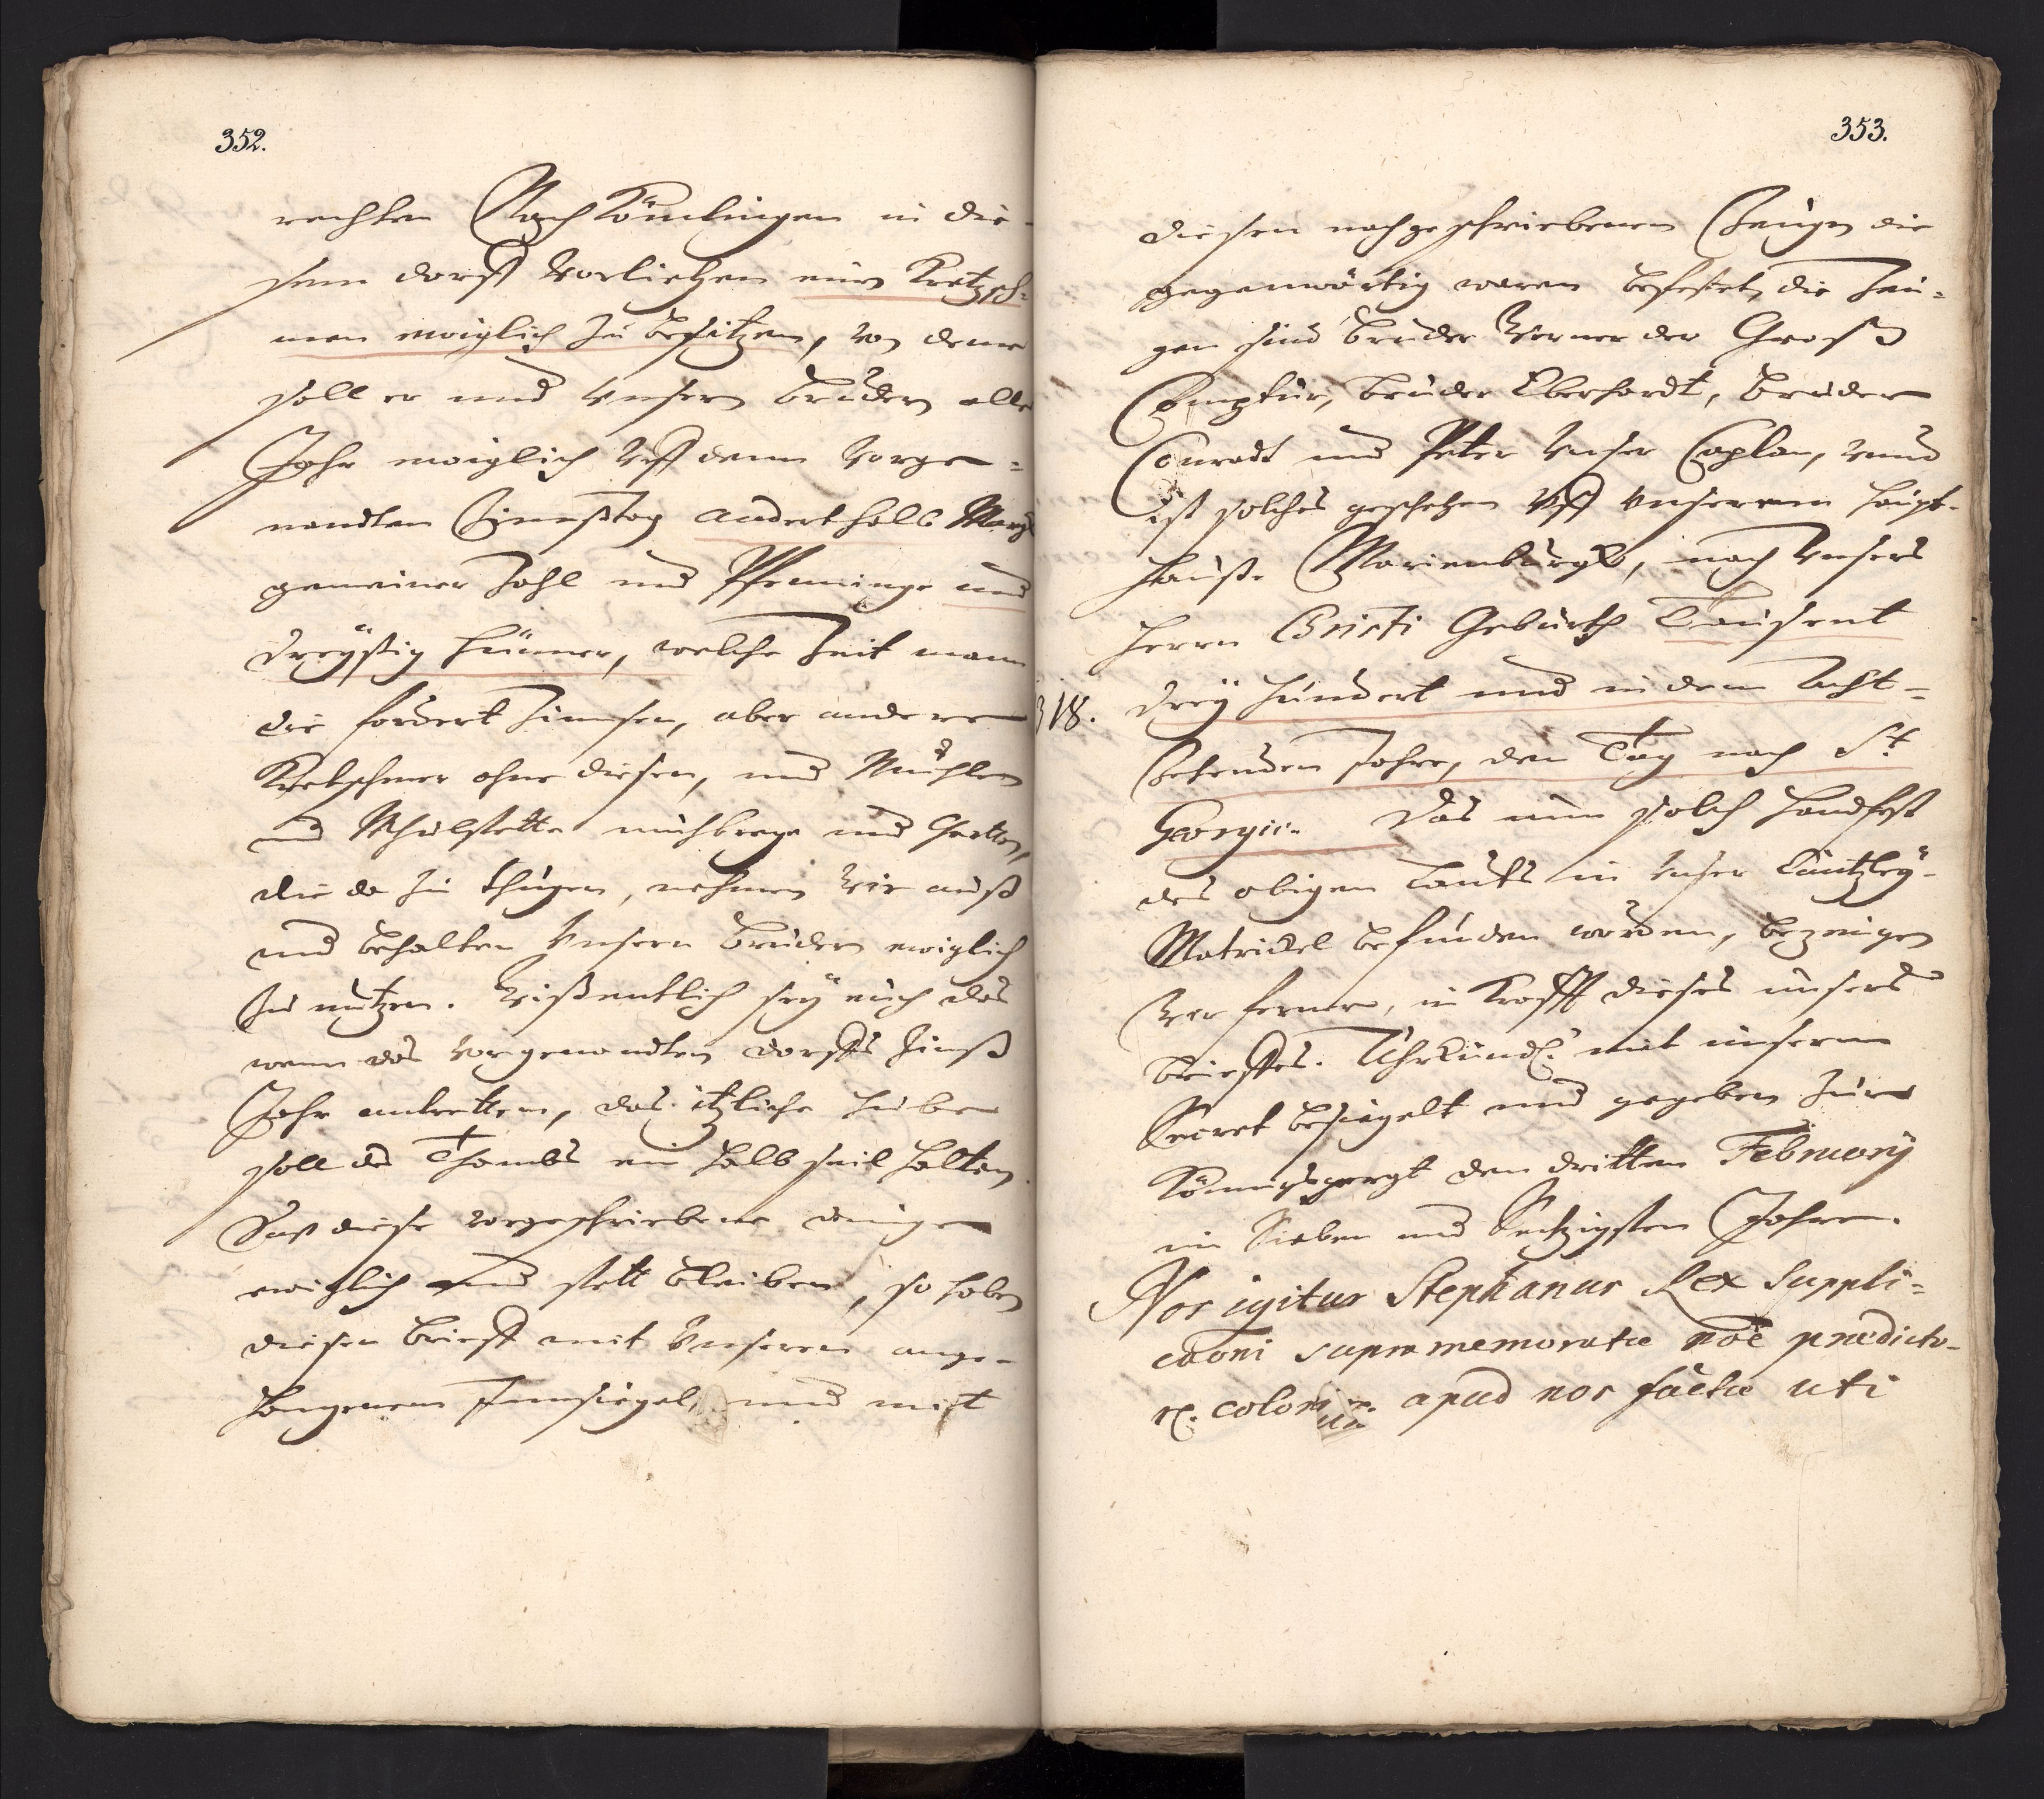 352.
rechten Nach Kömlingen in die-
sem dorff Vorliehen einen Kretzsch-
men ewiglich zu besitzen, Von deme
soll er und Unsern Brüdern alle
Jahr ewiglich Uff denn Vorge=
nandten Zinnßtag anderthalb Margk
gemeiner Zahl und Pfenninge und
dreyßig Hünner, welche Zeit mann
die fordert Zinnsen, aber andere
Kretschmer ohne diesen, und Mühlen
und Mhülstette und Gerten,
die da zu thügen, nehmen Wir auß
und behalten Unsern Brüdern ewiglich
Zu nutzen. Wißentlich sey euch das
wenn das Vorgenandten dorffs Zinß
Jahr antretten, das itzliche Huben
soll des Thambs ein halb seil halten.
Das diese vorgeschriebene dinge
ewichlich und stett bleiben, so haben
diesen Brieff mit Unserem ange-
hangenem Innsiegel, und mit
353.
diesen nachgeschriebenen Zeugen die
gegenwärtig waren befestet, die Zeu=
gen sind Bruder Werner der Groß
Comptür, Bruder Eberhardt, Bruder
Conradt und Peter Unser Caplan, Vnnd
ist solches geschehen Uff Unserem Haupt-
Hauße Marienburgk, nach Unsers
Herrn Christi Gebürth Tausent
318. drey hundert und in dem Acht-
Zehenden Jahre, den Tag nach St.
Georgii. Das nun solch Handfest
des obigen Lauts in Unser Cantzley-
Matrickel befunden worden, bezeugen
Wir ferner, in Krafft dieses unsers
Brieffes. Uhrkundl. mit unserm
Secret besiegelt und gegeben Zur
Königspergk den dritten February
im Sieben und Sechzigsten Jahre.
Nos igitur Stephanus Rex Suppli=
caoni supra memoratæ noe prædicto-
r. colon apud nos factæ uti